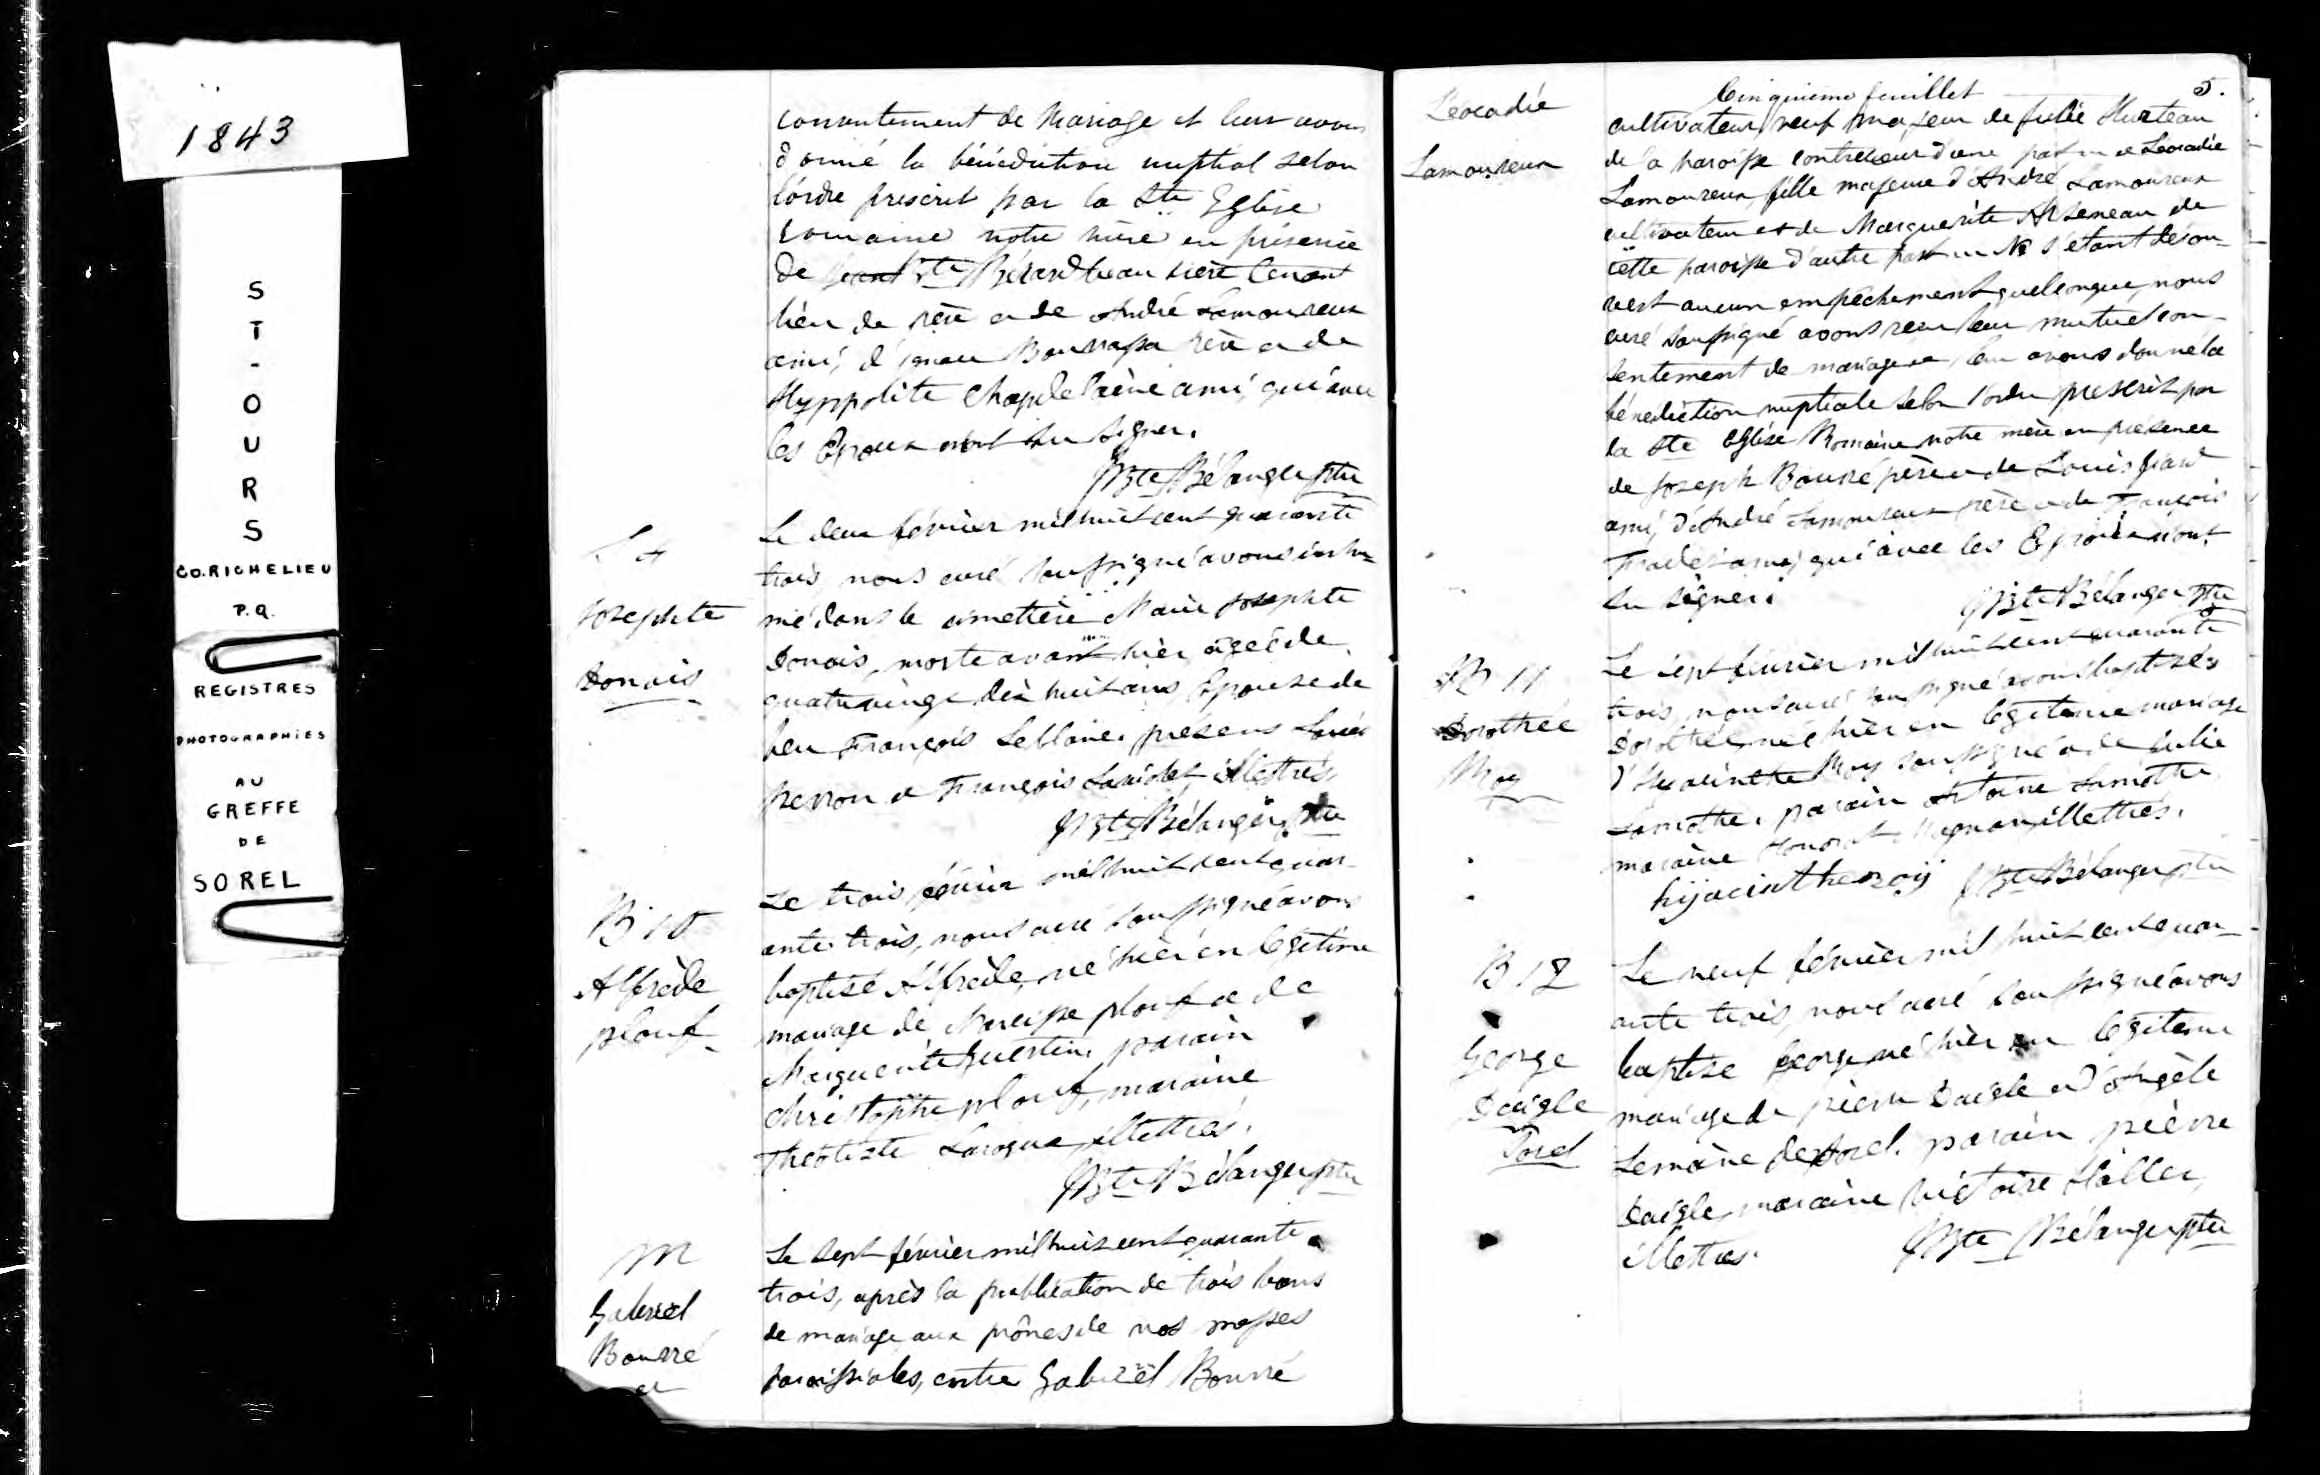 1843
ST-OURS
CO. RICHELIEU
P.Q.
REGISTRES
PHOTOGRAPHIES
AU
GREFFE
DE
SOREL
consentement de Mariage et leur avons
donné la bénédiction nuptial selon
l'ordre prescrit par la Ste Eglise
romaine notre mère en présence
de Bte Bérard beau
lieu de père et de André Lamoureux
ami, d' Bourrassa père et de
Hyppolite Chapdelaine ami, qui avec
les Epoux n'ont su signer.
JBte Bélanger ptre
S 4
Josephte
Donais
Le deux février mil huit cent quarante
trois, nous curé soussigné avons inhu-
mé dans le cimettière Marie Josephte
Donais, morte avant hier agée de
quatrevingt dix huit ans, Epouse de
feu François Leblanc. présens Louis
perron et François illettrés.
JBte Bélanger ptre
B 10
Alfrède
plouf
Le trois février mil huit cent quar-
ante trois, nous curé soussigné avons
baptisé Alfrède, né hier en légitime
mariage de Narcisse plouf et de
Marguerite Guertin. parain
Christophe plouf, maraine
Théotiste Laroque, illettrés.
JBte Bélanger ptre
M
Gabriel
Bourré
et
Le sept février mil huit cent quarante
trois, après la publication de trois bans
de mariage aux prônes de nos messes
paroissiales, entre Gabriel Bourré
Cinquième feuillet 5.
Léocadie
Lamoureux
cultivateur, veuf majeur de Julie Hurteau
de la paroisse contrecoeur d'une part et Léocadie
Lamoureux fille majeure d'André Lamoureux
cultivateur et de Marguerite Arseneau de
cette paroisse d'autre part Ne s'étant décou-
vert aucun empêchement quelconque, nous
curé soussigné avons reçu leur mutuel con-
sentement de mariage et leur avons donné la
bénédiction nuptiale selon l'ordre prescrit par
la Ste Eglise Romaine notre mère en présence
de Joseph Bourré père et de Louis
ami, d'André Lamoureux père et de François
ami, qui avec les Epoux n'ont
su signer.
JBte Bélanger ptre
B 11
Dorothée
Moy
Le sept février mil huit cent quarante
trois, nous curé soussigné avons baptisé
Dorothée née hier en légitime mariage
d'Hyacinthe Moy soussigné et de Julie
Lamothe. parain Antoine Lamothe
maraine illettrés.
hijacinthe moij JBte Bélanger ptre
B 12
George
Daigle
Sorel
Le neuf février mil huit cent quar-
ante trois, nous curé soussigné avons
baptisé George né hier en légitime
mariage de pierre Daigle et d'Angèle
Lemoine de Sorel. parain pierre
Daigle, maraine Victoire
illettrés. JBte Bélanger ptre